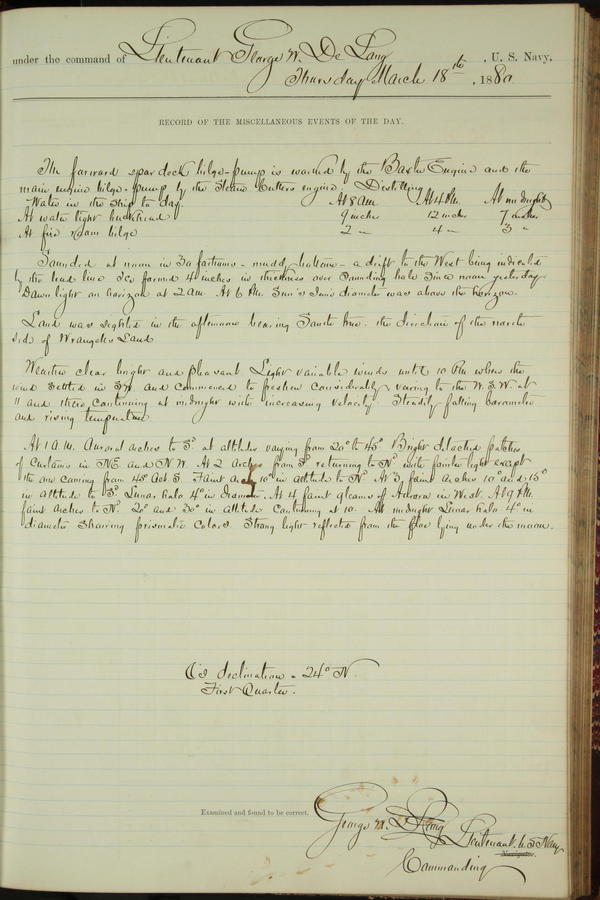 under the command of Lieutenant George W. De Long, U. S. Navy,
Thursday March 18th, 1880
RECORD OF THE MISCELLANEOUS EVENTS OF THE DAY.
The forward spar deck bilge-pump is worked by the Baxter Engine and the
main engine bilge-pump by the Steam Cutters engine. Distilling
Water in the Ship to day. At 8 AM. At 4 PM. At midnight
At water tight bulkhead 9 inches 12 inches 7 inches
At fire room bilge 2 " 4 " 3 "
Sounded at noon in 30 fathoms - muddy bottom - a drift to the West being indicated
by the lead line Ice formed 4 inches in thickness over Sounding hole Since noon yesterday
Dawn light on horizon at 2 am. At 6 PM. Sun's Semi diameter was above the horizon.
Land was sighted in the afternoon bearing South true. the direction of the north
side of Wrangel Land.
Weather clear bright and pleasant Light variable winds until 10 PM when the
wind settled in SW. and commenced to freshen considerably veering to the W.S.W. at
11 and there continuing at midnight with increasing velocity Steadily falling barometer
and rising temperature.
At 1 A.M. Auroral arches to Sd. at altitudes varying from 20° to 45° Bright detached patches
of curtains in NE. and NW. At 2 Arches from Sd. returning to Nd. with fainter light except
the one coming from 45° Faint Arch 10° in altitude to Nd. At 3, faint arches 10° and 15°
in altitude to Sd. Lunar halo 4° in Diameter. At 4 faint gleams of Aurora in West. At 9 P.M.
faint arches to Nd. 20° and 30° in altitude Continuing at 10. At midnight Lunar halo 4° in
diameter showing prismatic colors. Strong light reflected from the floe lying under the moon.
☾'s declination = 24° N.
First Quarter.
Examined and found to be correct.
George W. De Long Lieutenant. U.S. Navy
Navigator.
Commanding